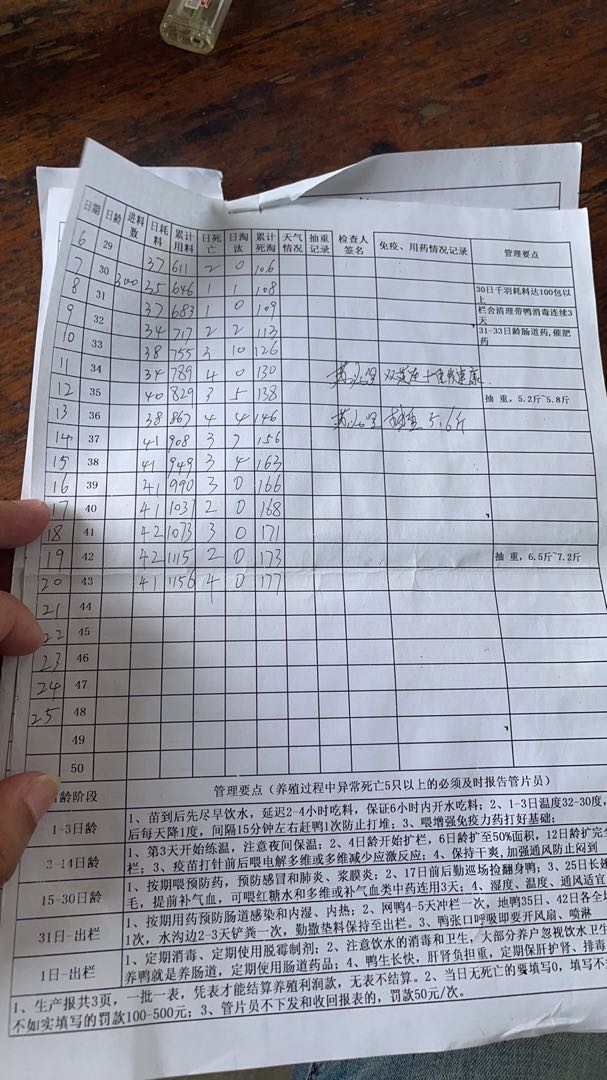 日期 日龄 进料数 日耗料 累计用料 日死亡 日淘汰 累计死淘 天气情况 抽重记录 检查人签名 免疫、用药情况记录 管理要点
6 29 37 611 2 0 106
7 30 300 35 646 1 1 108 30日千羽耗料达100包以上
8 31 37 683 1 0 109 栏舍清理带鸭消毒连续3天
9 32 34 717 2 2 113 31-33日龄肠道药,催肥药
10 33 38 755 3 10 126
11 34 34 789 4 0 130 双黄连
12 35 40 829 3 5 138 抽 重，5.2斤~5.8斤
13 36 38 867 4 4 146 抽重 5.6斤
14 37 41 908 3 7 156
15 38 41 949 3 4 163
16 39 41 990 3 0 166
17 40 41 1031 2 0 168
18 41 42 1073 3 0 171
19 42 42 1115 2 0 173 抽 重，6.5斤~7.2斤
20 43 41 1156 4 0 177
21 44
22 45
23 46
24 47
25 48
49
50
龄阶段 管理要点（养殖过程中异常死亡5只以上的必须及时报告管片员）
1-3日龄 1、苗到后先尽早饮水，延迟2-4小时吃料，保证6小时内开水吃料；2、1-3日温度32-30度，
后每天降1度，间隔15分钟左右赶鸭1次防止打堆；3、喂增强免疫力药打好基础；
2-14日龄 1、第3天开始练温，注意夜间保温；2、4日龄开始扩栏，6日龄扩至50%面积，12日龄扩完全
栏；3、疫苗打针前后喂电解多维或多维减少应激反应；4、保持干爽,加强通风防止闷到
15-30日龄 1、按期喂预防药，预防感冒和肺炎、浆膜炎；2、17日前后勤巡场捡翻身鸭；3、25日长翅
毛，提前补气血，可喂红糖水和多维或补气血类中药连用3天；4、湿度、温度、通风适宜
31日-出栏 1、按期用药预防肠道感染和内湿、内热；2、网鸭4-5天冲栏一次，地鸭35日、42日各全场
1次，水沟边2-3天铲粪一次，勤撒垫料保持至出栏。3、鸭张口呼吸即要开风扇、喷淋
1日-出栏 1、定期消毒、定期使用脱霉制剂；2、注意饮水的消毒和卫生，大部分养户忽视饮水卫生
养鸭就是养肠道，定期使用肠道药品；4、鸭生长快，肝肾负担重，定期保肝护肾、排毒
1、生产报共3页，一批一表，凭表才能结算养殖利润款，无表不结算。2、当日无死亡的填写0，填写不
不如实填写的罚款100-500元；3、管片员不下发和收回报表的，罚款50元/次。